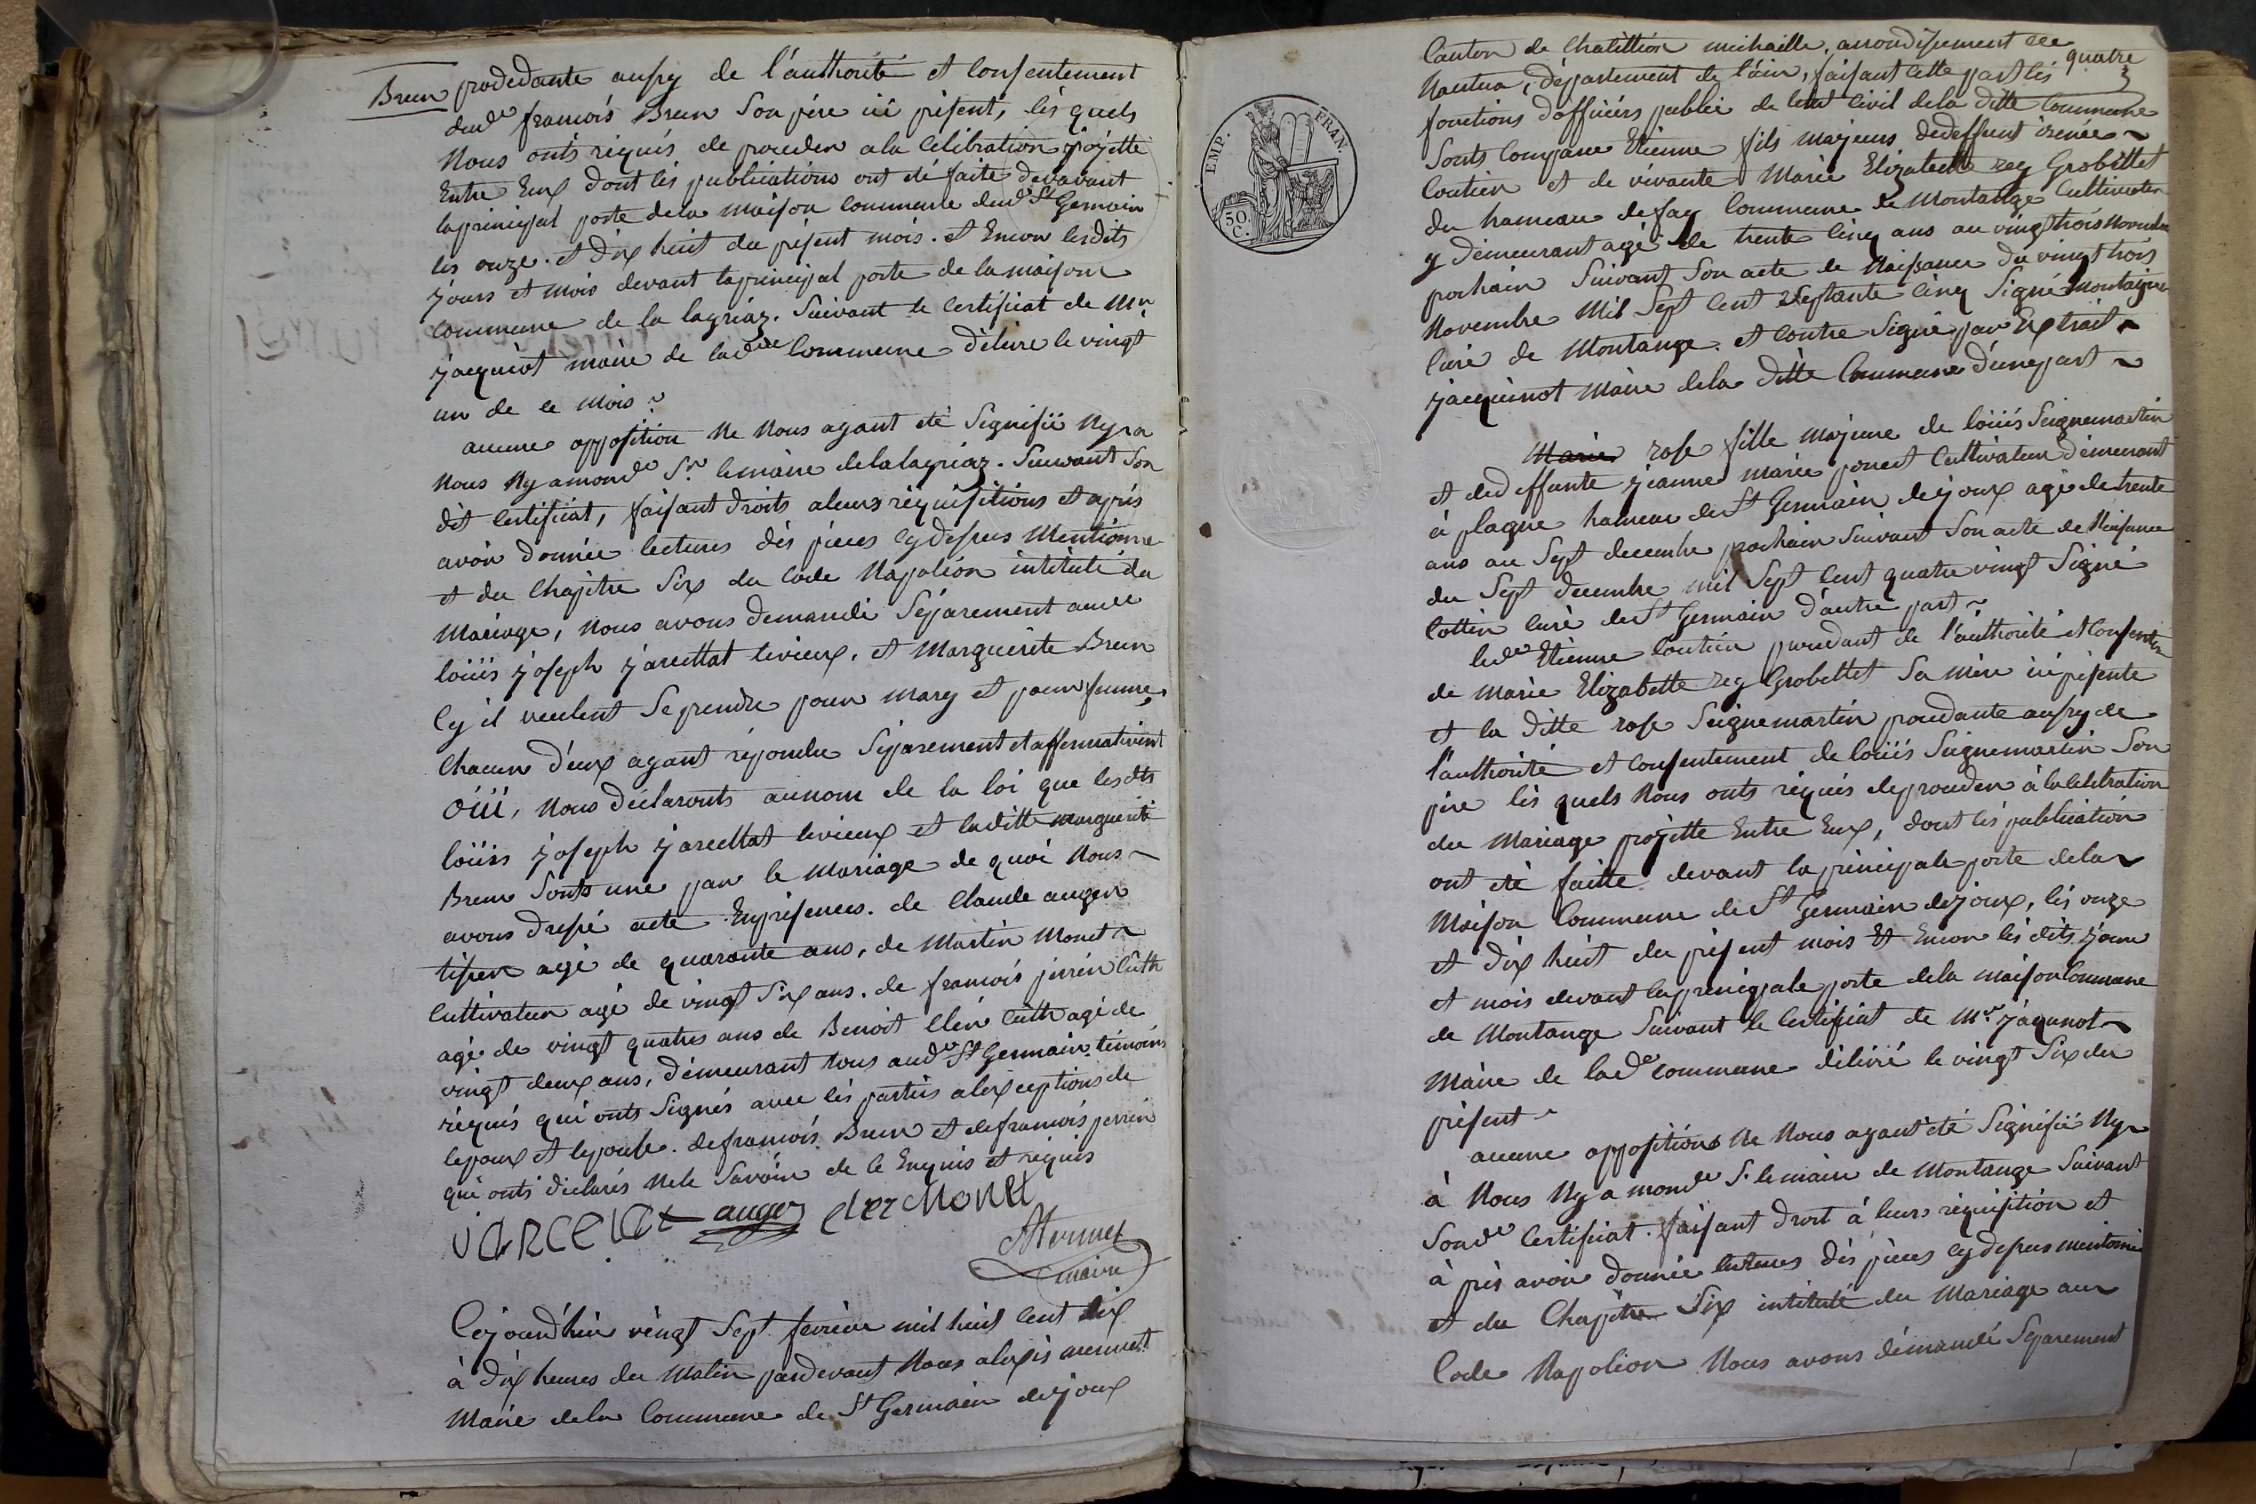 Brun prodedante aufsy de l'authorité et consentement
dud.e francois Brun Son père ici présent, lés quels
Nous onts réquis de proceder a la Célébration projétte
Entre Eux dont lés publications ont été faite devavant
laprincipal porte dela maison commune dud.e St Germain
les onze. et dix huit du présent mois. et Encor lesdits
jours et mois devant laprincipal porte de la maison
commune de la lagriaz. Suivant le certificat de Mr
jacquiot maire de lad.e Commune délivre le vingt
un de ce mois ~
aucune opposition Ne Nous ayant été Signifié Ny a
Nous Ny amond.e Sr. lemaire delalagriaz. Suivant Son
dit Certificat, faisant droits aleurs réquisitions et après
avoir donnée lectures dés pièces cydessus Mentionné
et du Chapitre Six du Code Napoléon intitulé du
Mariage, Nous avons demandé Séparement audit
loüis joseph jarcellat levieux, et Marguerite Brun
Cy il veulent Se prendre pour mary et pour femme,
Chacun d'eux ayant répondu Séparement et affermativement
öüi, Nous déclaronts aunom de la loi que lesdts
loüis joseph jarcellat levieux et laditte marguerite
Brun Sonts unis par le Mariage de quoi Nous ~
avons dressé acte Enprésences. de Claude auger
tissier agé de quarante ans, de Martin Monet ~
Cultivateur agé de vingt Six ans. de francois perrin Cult
agé de vingt quatres ans de Benoit Clér Cult agé de
vingt deux ans, démeurant tous aud.e St Germain témoins
réquis qui onts Signés avec lés partiès aléxceptions de
lepoux et lepouse. defrancois Brun et defrancois perrin
qui onts déclarés Nele Savoir de ce Enquis et réquis
jARCELAt auger clerc MONET
Mermet
maire
Cejourd'hui vingt Sept fevrier mil huit cent dix
à dix heures du Matin pardevant Nous aléxis mermet
Maire dela Commune de St Germain dejoux
Canton de Chatillion michaille, arrondissement de
quatre
Nantua, département de l'ain, faisant Cette part lés
fonctions d'officiérs public de létat Civil dela ditte Commune
Sonts Comparu Etienne fils majeur dedeffunt irenée ~
Coutier et de vivante Marie Elizabette rey Grobellet
du hameau defay Commune de Montange Cultivateur
y démeurant agé de trente cinq ans au vingt trois Novembre
prochain Suivant Son acte de Naissance du vingt trois
Novembre Mil Sept Cent Septante Cinq Signé montaigne
Curé de Montange. et Contre Signé par Extrait ~
jacquinot Maire dela ditte Commune d'unepart ~
Marie rose fille majeure de loüis Seignemartin
et dedeffunte jeanne marie ponert Cultivateur démeurant
à plagne hameau de St Germain dejoux agé de trente
ans au Sept decembre prochain Suivant Son acte de Naissance
du Sept decembre mil Sept Cent quatre vingt Signé
Cottin Curé de St Germain d'autre part ~
led.e Etienne Coutier procedant de l'authorité et Consente
de marie Elizabette rey Grobellet Sa mère ici présente
et la ditte rose Seignemartin procedante aufsy de
l'authorité et Consentement de loüis Seignemartin Son
père lés quels Nous onts réquis deproceder à la Celebration
du Mariage projétte Entre Eux, dont lés publication
ont été faitte devant la principale porte dela ~
Maison Commune de St Germain dejoux, lés onze
et dix huit du présent mois Et Encor lés dits jour
et mois devant laprincipale porte dela maison Commune
de Montange Suivant le Certificat de Mr jaqunot ~
Maire de lad.e commune délivré le vingt Six du
présent ~
aucune oppositions Ne Nous ayant été Signifié Ny ~
à Nous Ny a mond.e Sr lemaire de Montange Suivant
Sond.e Certificat. faisant droit à leurs réquisition et
à près avoir donnée lectures dés pièces cydessus mentionné
et du Chapitre Six intitulé du Mariage au ~
Code Napoléon Nous avons démandé Séparement
EMP. FRAN.
50. C.